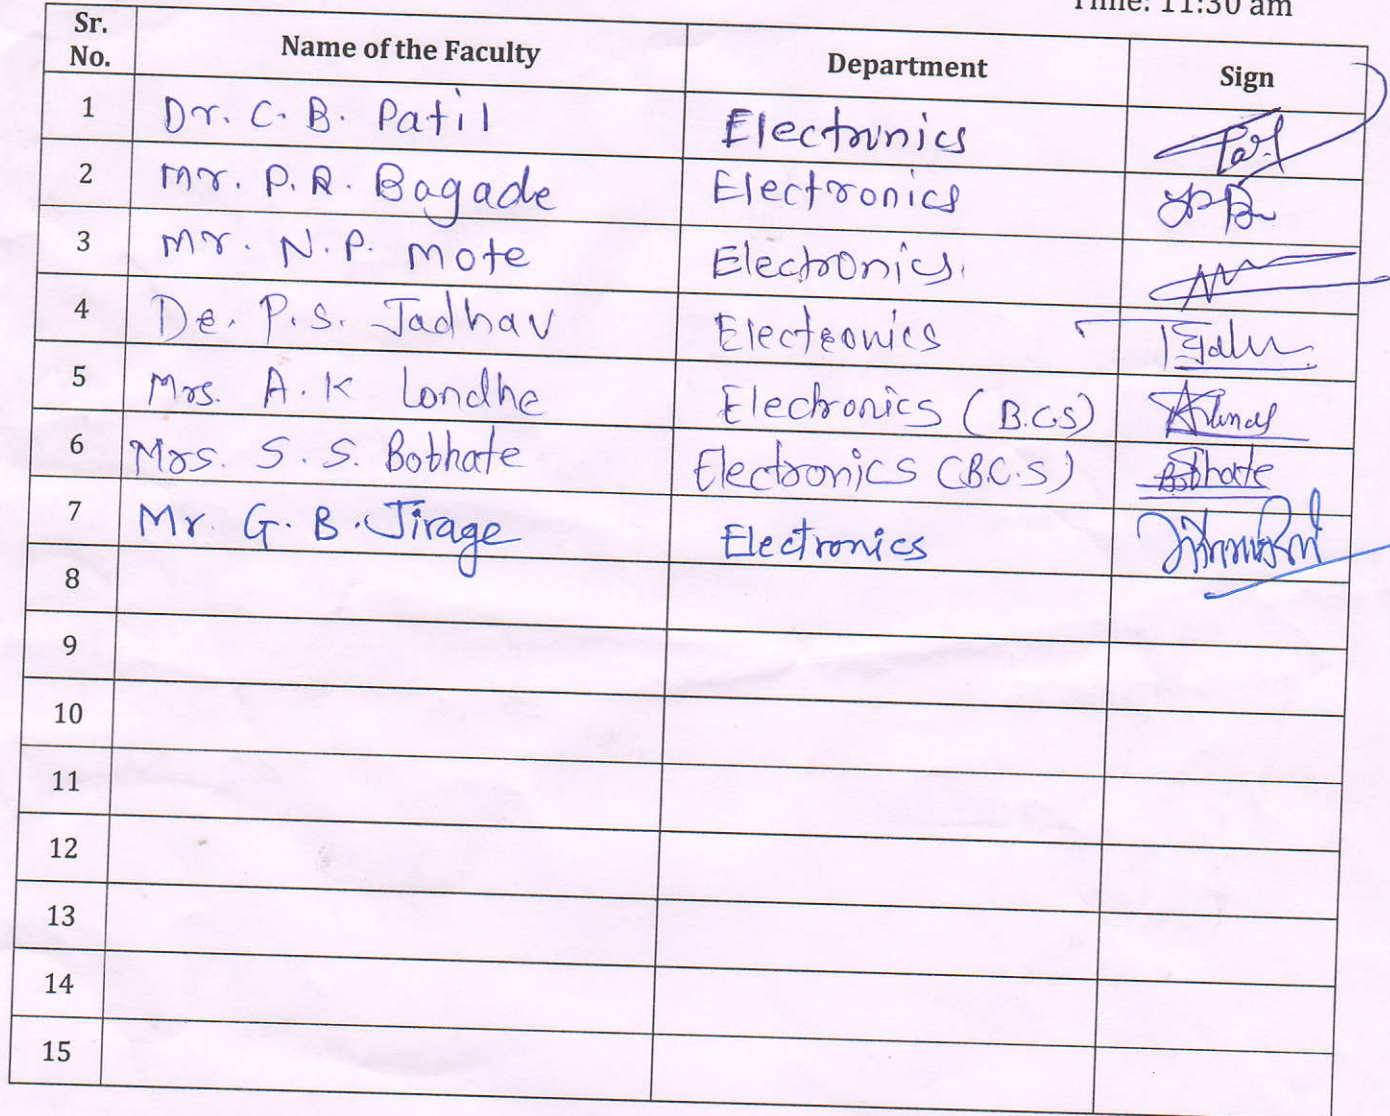 Time: 11:30 am
Sr. No. Name of the Faculty Department Sign
1 Dr. C. B. Patil Electronics
2 Mr. P. R. Bagade Electronics
3 Mr. N. P. Mote Electronics.
4 De. P. S. Jadhav Electronics
5 Mrs. A. K Londhe Electronics (B.C.S)
6 Mrs. S. S. Bobhate Electronics (B.C.S) Bobhate
7 Mr. G. B. Jirage Electronics
8
9
10
11
12
13
14
15